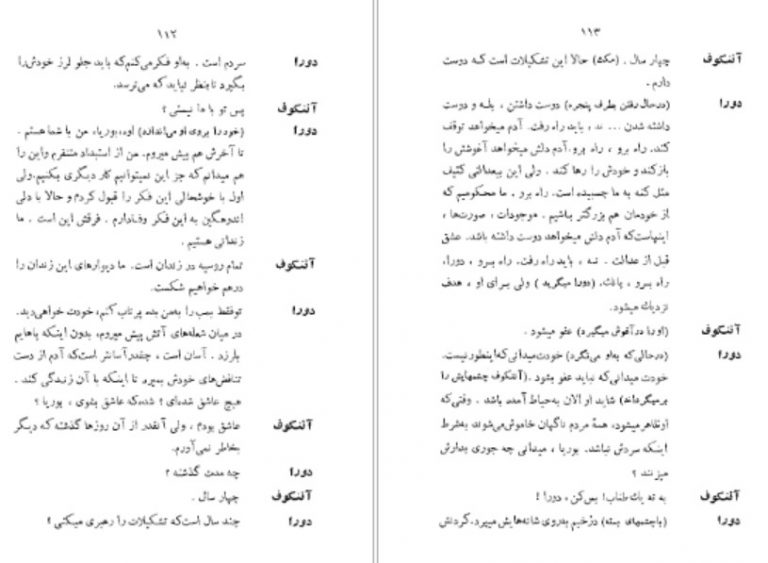 ۱۱۲
دورا سردم است . به‌او فکرمی‌کنم‌که باید جلو لرز خودش‌را
بگیرد تابنظر نیاید که می‌ترسد.
آننکوف پس تو با ما نیستی ؟
دورا (خود را بروی او می‌اندازد) اوه،بوریا، من با شما هستم .
تا آخرش هم پیش میروم. من از استبداد متنفرم واین را
هم میدانم‌که جز این نمیتوانیم کار دیگری بکنیم.ولی
اول با خوشحالی این فکر را قبول کردم و حالا با دلی
اندوهگین به این فکر وفادارم . فرقش این است . ما
زندانی هستیم .
آننکوف تمام روسیه در زندان است. ما دیوارهای این زندان را
درهم خواهیم شکست.
دورا توفقط بمب را به‌من بده پرتاب کنم، خودت خواهی‌دید.
در میان شعله‌های آتش پیش میروم، بدون اینکه پاهایم
بلرزد . آسان است ، چقدرآسانتر است‌که آدم از دست
تناقض‌های خودش بمیرد تا اینکه با آن زندگی کند .
هیچ عاشق شده‌ای ؟ شده‌که عاشق بشوی ، بوریا ؟
آننکوف عاشق بودم ، ولی آنقدر از آن روزها گذشته که دیگر
بخاطر نمی‌آورم.
دورا چه مدت گذشته ؟
آننکوف چهار سال .
دورا چند سال است‌که تشکیلات را رهبری میکنی ؟
۱۱۳
آننکوف چهار سال . (مکث) حالا این تشکیلات است که دوست
دارم .
دورا (درحال رفتن بطرف پنجره) دوست داشتن ، بله و دوست
داشته شدن ... نه ، باید راه رفت. آدم میخواهد توقف
کند. راه برو ، راه برو. آدم دلش میخواهد آغوشش را
بازکند و خودش را رها کند . ولی این بیعدالتی کثیف
مثل کنه به ما چسبیده است. راه برو . ما محکومیم که
از خودمان هم بزرگتر باشیم . موجودات ، صورت‌ها ،
اینهاست‌که آدم دلش میخواهد دوست داشته باشد. عشق
قبل از عدالت . نه ، باید راه رفت. راه برو ، دورا،
راه برو ، یانك. (دورا میگرید ) ولی برای او ، هدف
نزدیك میشود.
آننکوف (اورا درآغوش میگیرد) عفو میشود .
دورا (درحالی‌که به‌او می‌نگرد) خودت میدانی‌که‌اینطور نیست.
خودت میدانی که نباید عفو بشود .(آننکوف چشمهایش را
برمیگرداند) شاید او الان به‌حیاط آمده باشد . وقتی‌که
اوظاهر میشود، همهٔ مردم ناگهان خاموش‌می‌شوند، به‌شرط
اینکه سردش نباشد. بوریا ، میدانی چه جوری بدارش
میزنند ؟
آننکوف به ته یك طناب! بس‌کن ، دورا !
دورا (باچشمهای بسته) دژخیم به‌روی شانه‌هایش میپرد.گردنش